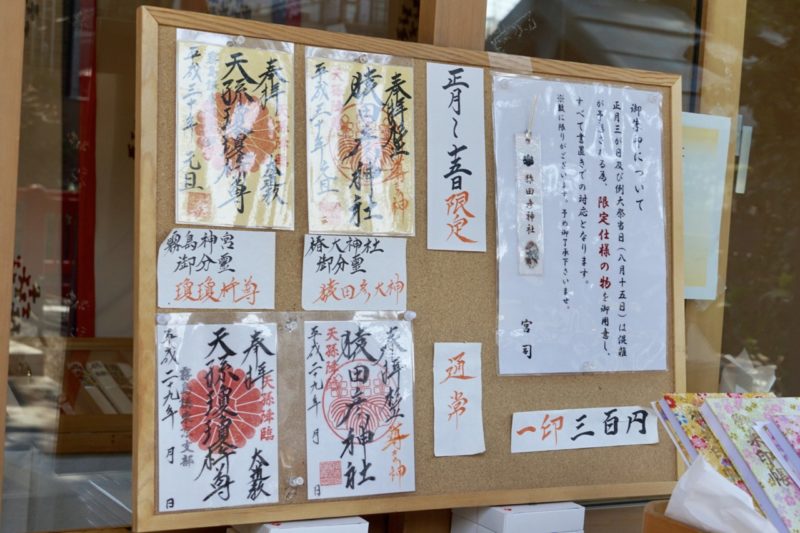 御朱印について
正月三が日及び例大祭当日（八月十五日）は混雑
が予想される為、限定仕様の物を御用意し、
すべて書置きでの対応となります。
※数に限りがございます。予め御了承下さいませ。
宮司
猿田彦神社
正月〜十五日限定
奉拝
猿田彦神社
平成三十年 元旦
奉拝
天孫瓊瓊杵尊
太玄敎
平成三十年 元旦
椿大神社
御分霊
猿田彦大神
霧島神宮
御分霊
瓊瓊杵尊
通常
一印 三百円
奉拝
猿田彦神社
天孫降臨
平成二十九年 月 日
奉拝
天孫降臨
天孫瓊瓊杵尊
平成二十九年 月 日
御朱印帳